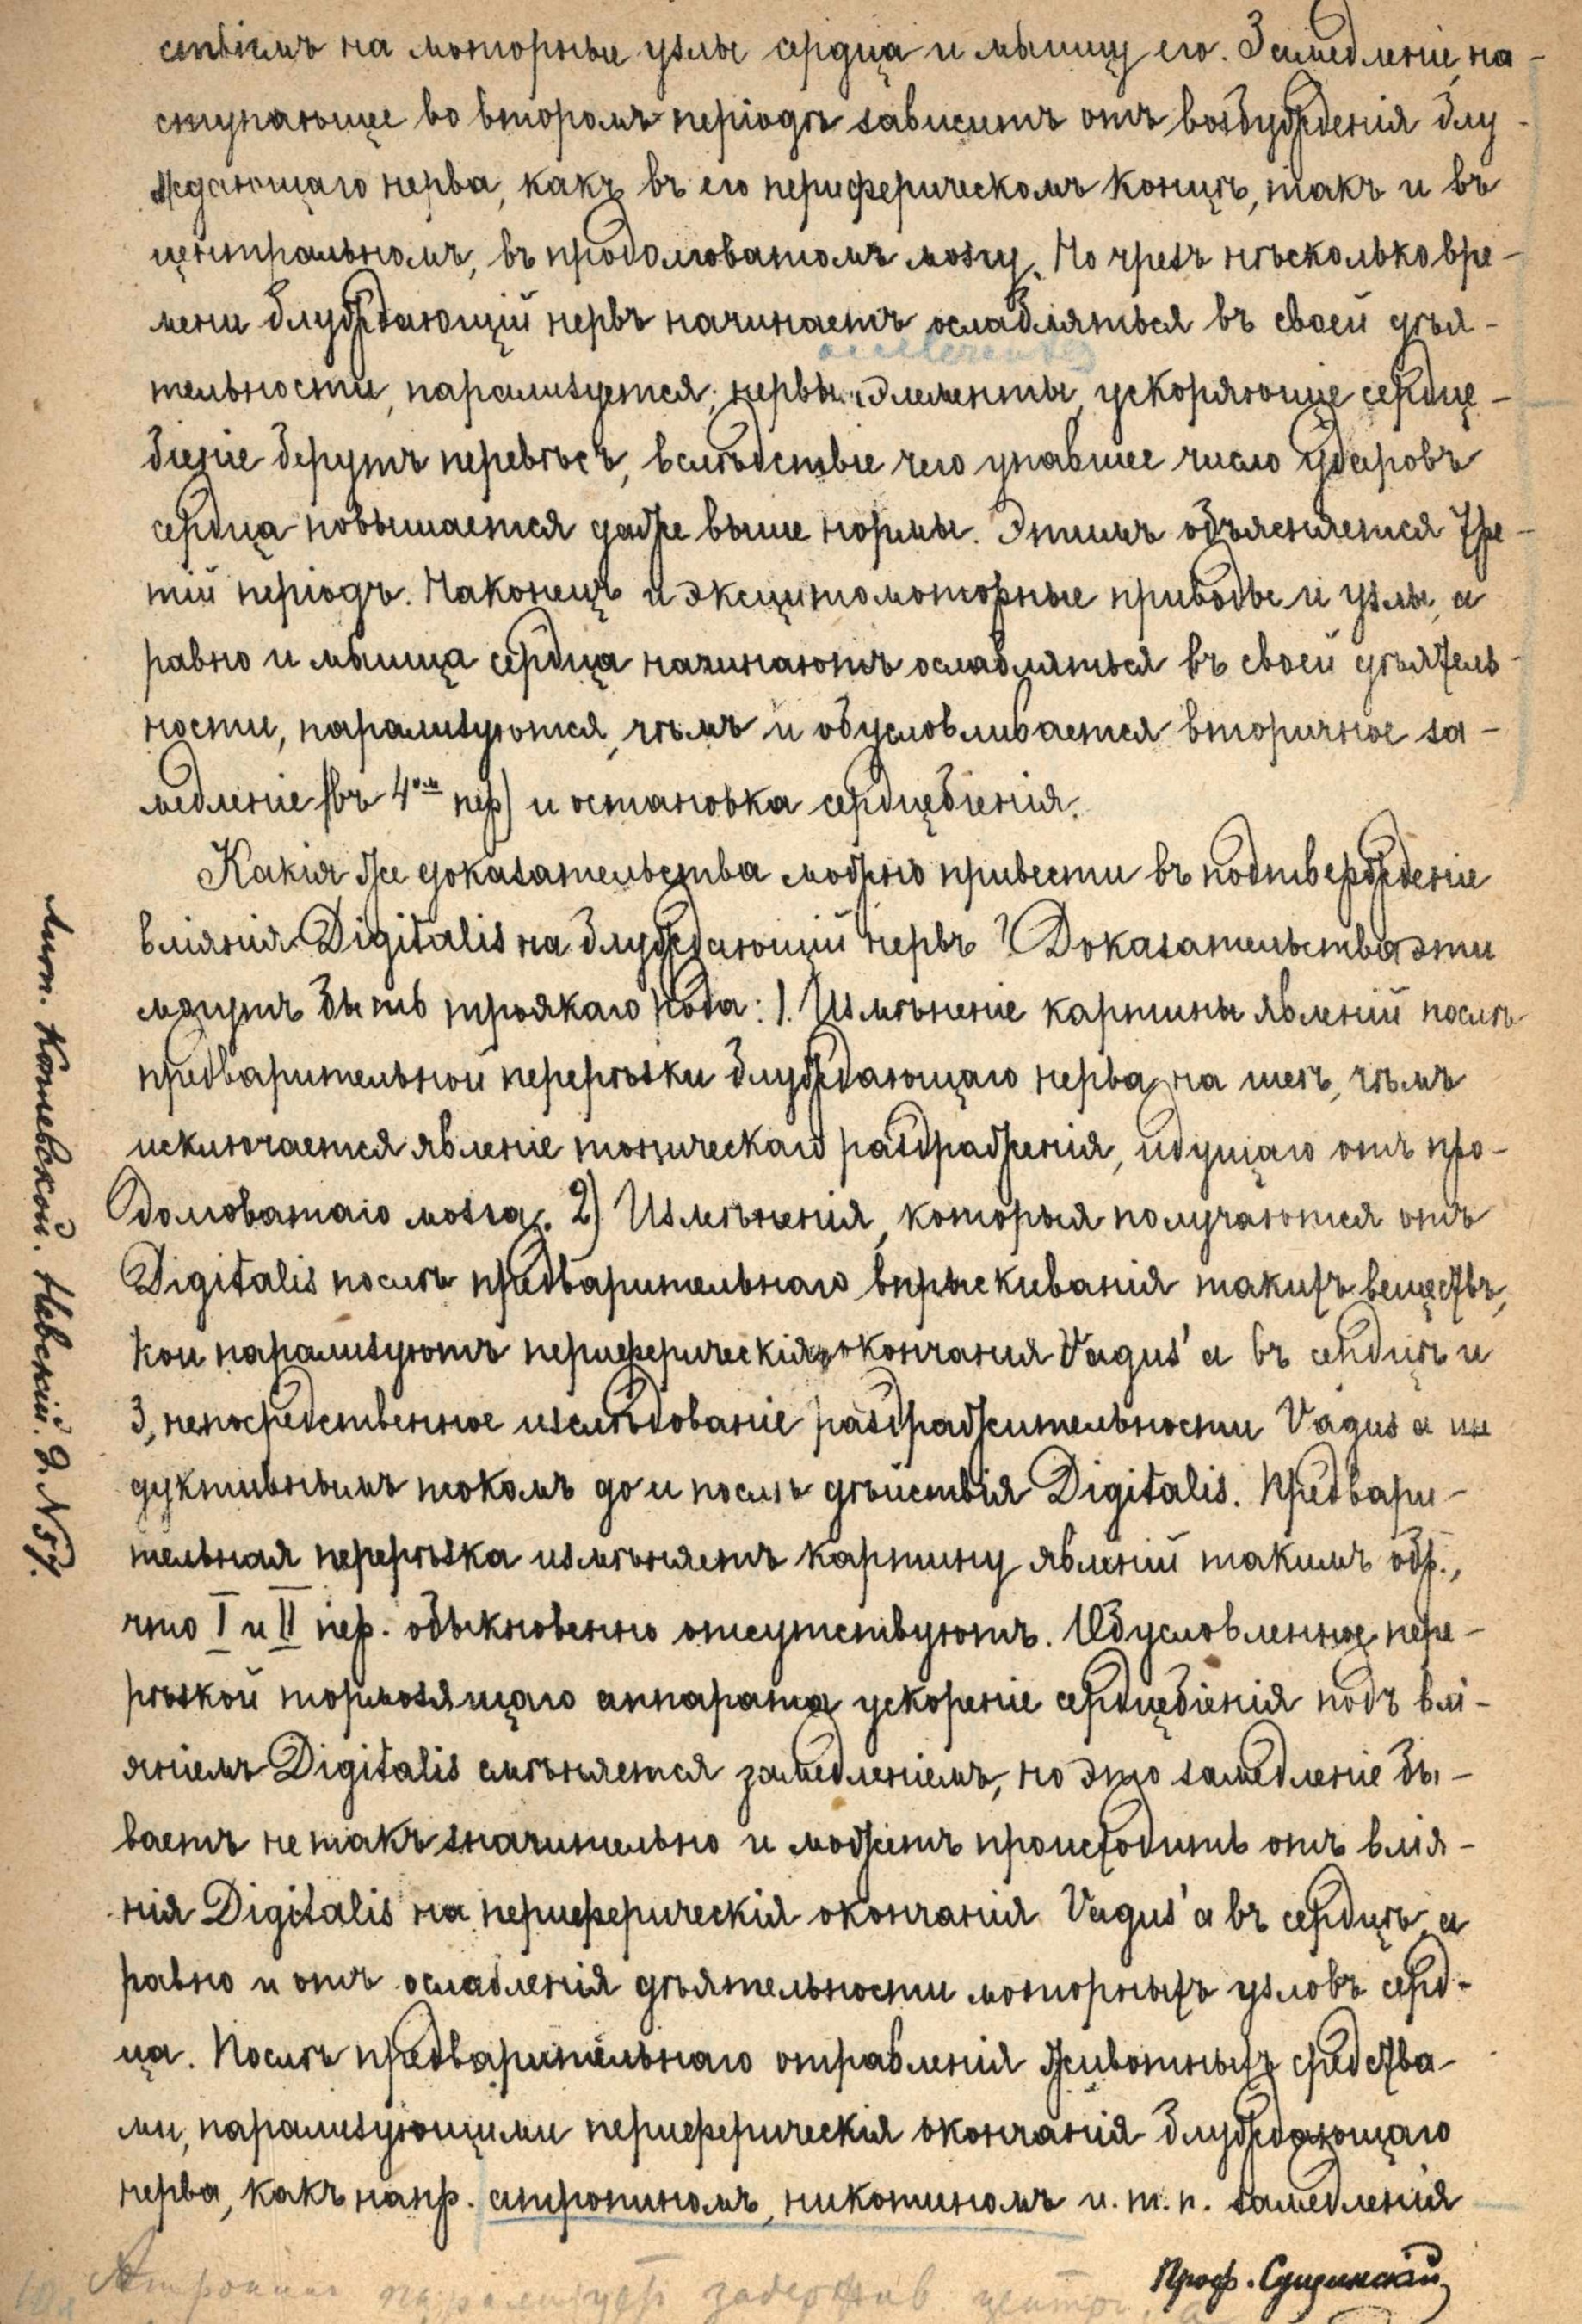 ствіемъ на моторные узлы сердца и мышцу его. Замедленіе, на-
ступающее во второмъ періодѣ зависитъ отъ возбужденія блу-
ждающаго нерва, какъ въ его периферическомъ концѣ, такъ и въ
центральномъ, въ продолговатомъ мозгу. Но чрезъ нѣсколько вре-
мени блуждающій нервъ начинаетъ ослабляться въ своей дѣя-
accelerantes
тельности, парализуется; нервы и элементы, ускоряющіе сердце-
біеніе берутъ перевѣсъ, вслѣдствіе чего упавшее число ударовъ
сердца повышается даже выше нормы. Этимъ объясняется тре-
тій періодъ. Наконецъ и эксцитомоторные приводы и узлы, а
равно и мышца сердца начинаютъ ослабляться въ своей дѣятель-
ности, парализуются, чѣмъ и обусловливается вторичное за-
медленіе (въ 4омъ пер) и остановка сердцебіенія.
Какія же доказательства можно привести въ подтвержденіе
вліянія Digitalis на блуждающій нервъ? Доказательства эти
могутъ быть троякаго рода: 1. Измѣненіе картины явленій послѣ
предварительной перерѣзки блуждающаго нерва на шеѣ, чѣмъ
исключается явленіе тоническаго раздраженія, идущаго отъ про-
долговатаго мозга. 2) Измѣненія, которыя получаются отъ
Digitalis послѣ предварительнаго впрыскиванія такихъ веществъ,
кои парализуютъ периферическія окончанія Vagus'а въ сердцѣ и
3, непосредственное изслѣдованіе раздражительности Vagus а ин
дуктивнымъ токомъ до и послѣ дѣйствія Digitalis. Предвари-
тельная перерѣзка измѣняетъ картину явленій такимъ обр.,
что I и II пер. обыкновенно отсутствуютъ. Обусловленное пере-
рѣзкой тормозящаго аппарата ускореніе сердцебіенія подъ влі-
яніемъ Digitalis смѣняется замедленіемъ, но это замедленіе бы-
ваетъ не такъ значительно и можетъ происходить отъ влія-
нія Digitalis на периферическія окончанія Vagus'а въ сердцѣ, а
равно и отъ ослабленія дѣятельности моторныхъ узловъ серд-
ца. Послѣ предварительнаго отравленія животныхъ средства-
ми, парализующими периферическія окончанія блуждающаго
нерва, какъ напр. атропиномъ, никотиномъ и. т. п. замедленія
Проф. Сущинскій
Атропинъ парализуетъ задержив. центры, а
Лит. Комевской. Невскій. д. N 57.